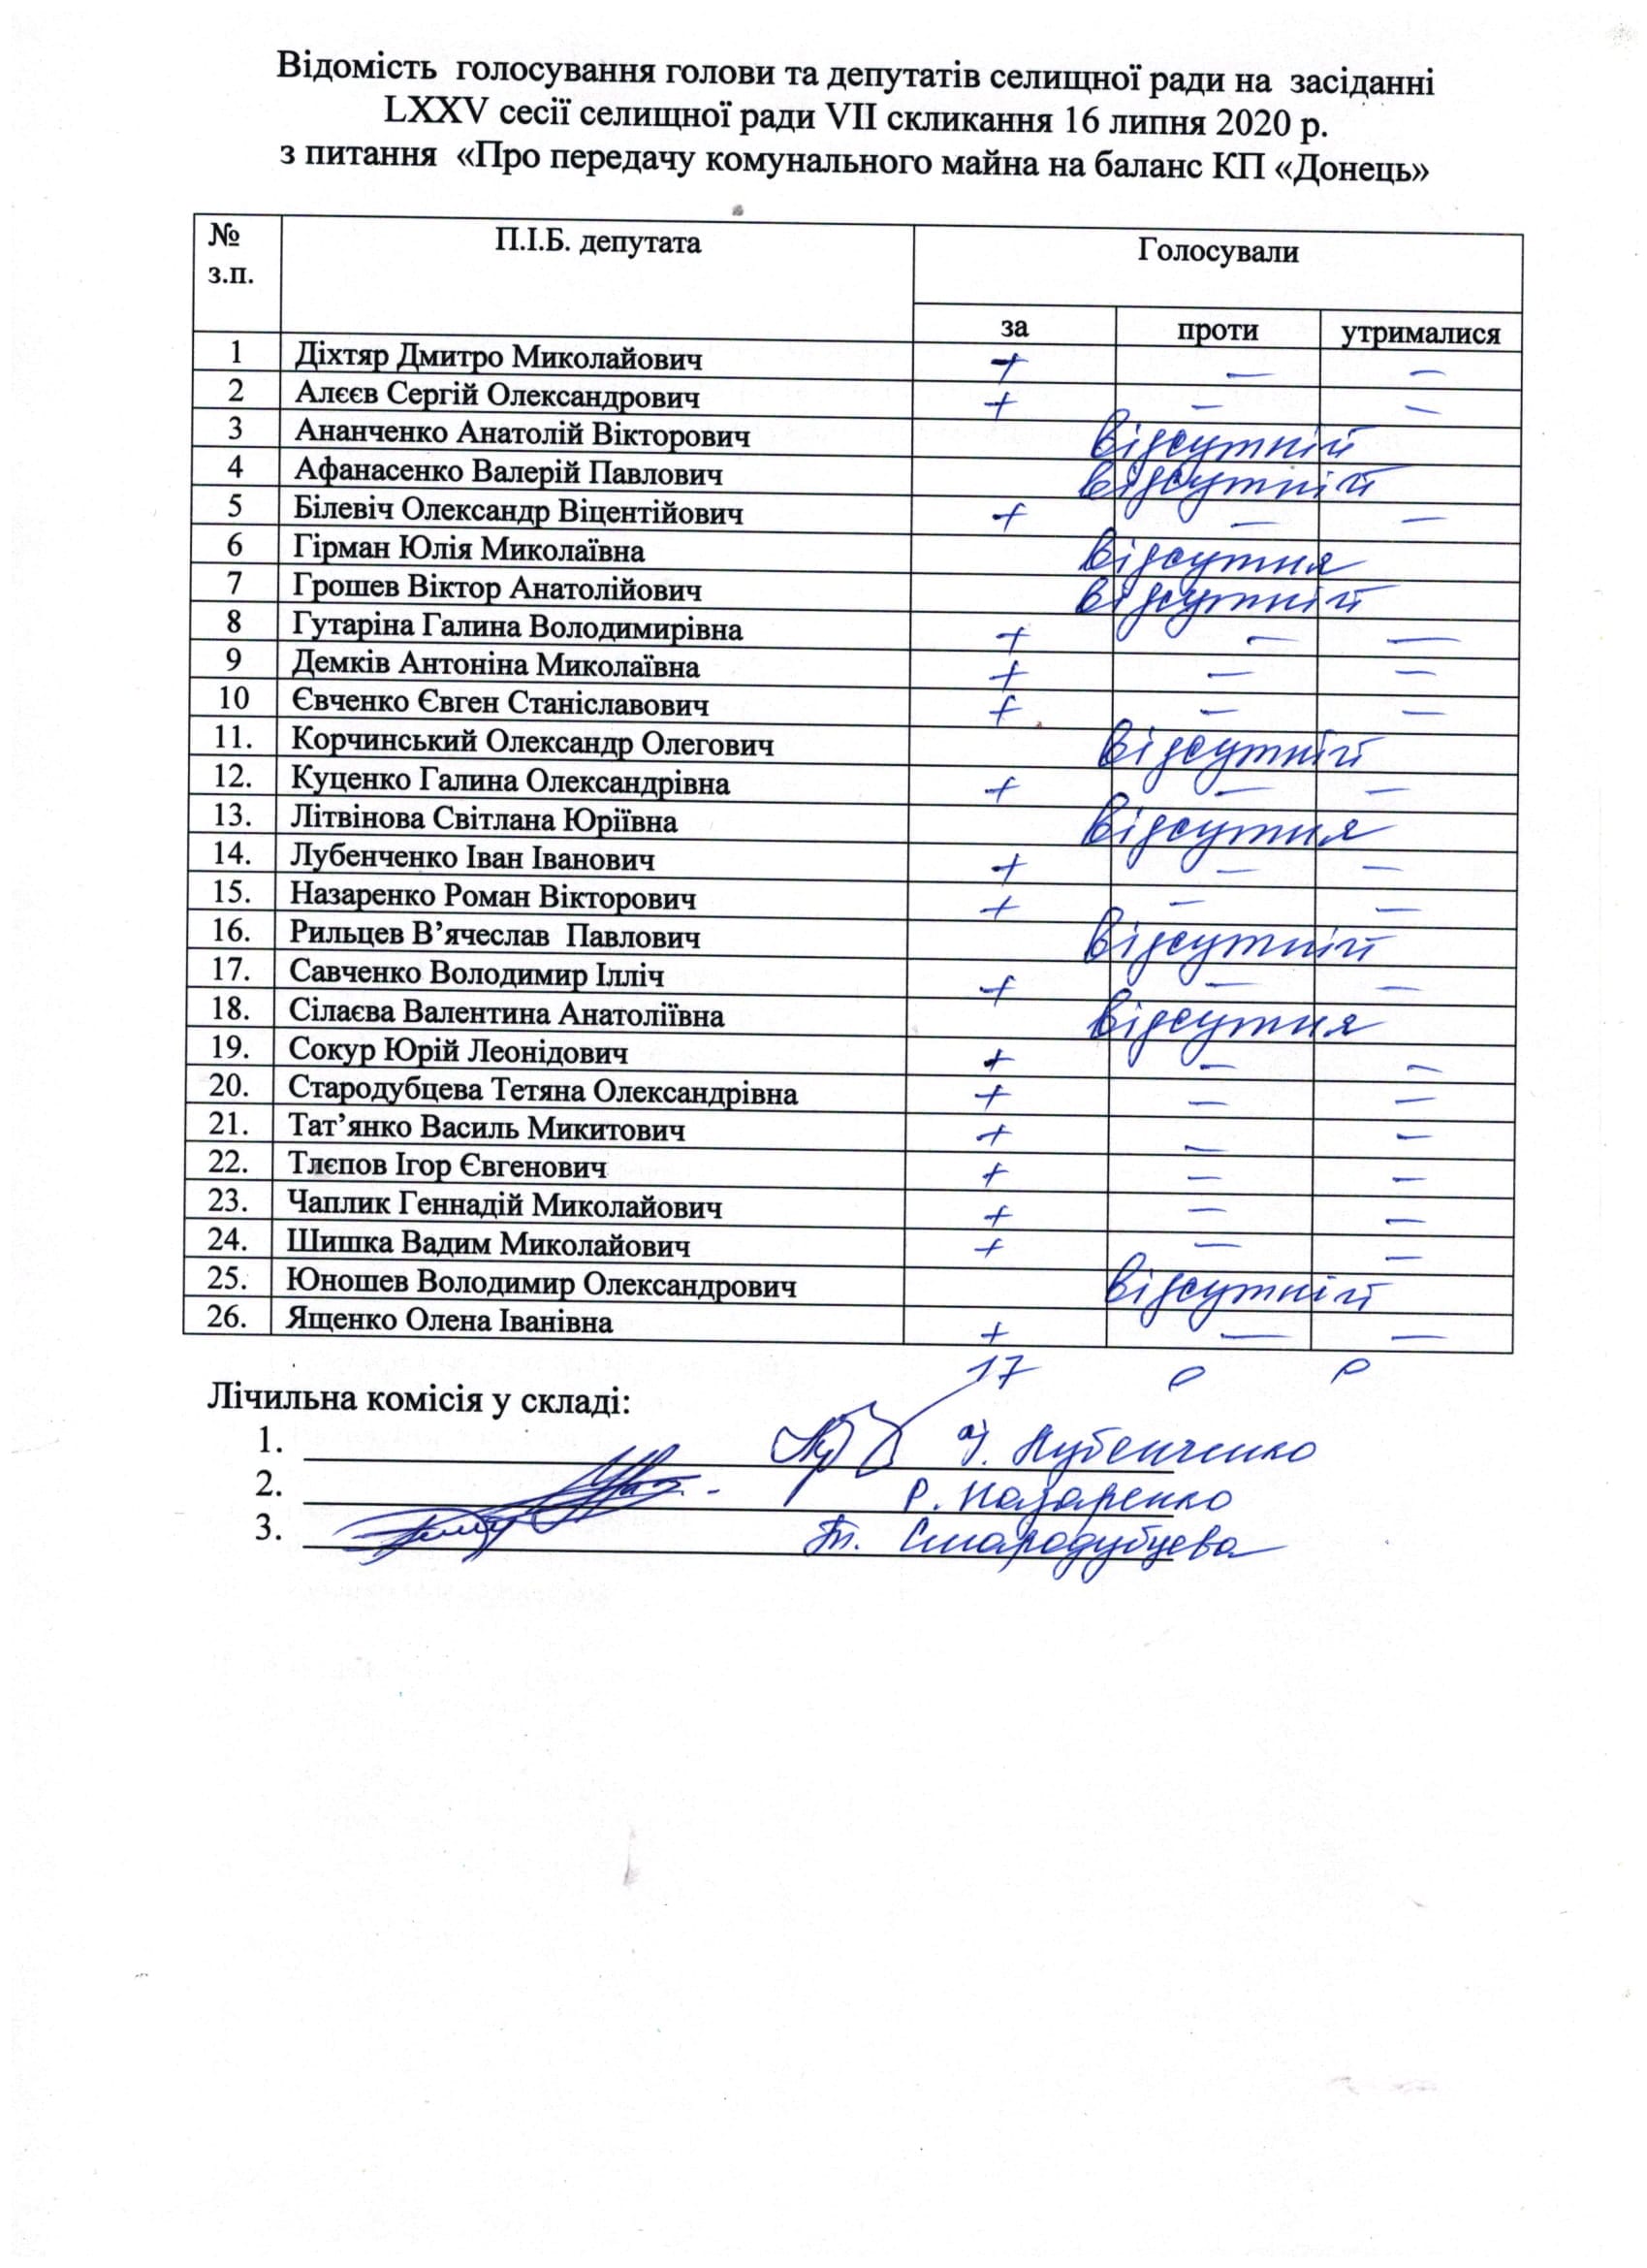 Відомість голосування голови та депутатів селищної ради на засіданні
LXXV сесії селищної ради VII скликання 16 липня 2020 р.
з питання «Про передачу комунального майна на баланс КП «Донець»
№ з.п. П.І.Б. депутата Голосували
за проти утрималися
1 Діхтяр Дмитро Миколайович + — —
2 Алєєв Сергій Олександрович + — —
3 Ананченко Анатолій Вікторович відсутній
4 Афанасенко Валерій Павлович відсутній
5 Білевіч Олександр Віцентійович + — —
6 Гірман Юлія Миколаївна відсутня
7 Грошев Віктор Анатолійович відсутній
8 Гутаріна Галина Володимирівна + — —
9 Демків Антоніна Миколаївна + — —
10 Євченко Євген Станіславович + — —
11. Корчинський Олександр Олегович відсутній
12. Куценко Галина Олександрівна + — —
13. Літвінова Світлана Юріївна відсутня
14. Лубенченко Іван Іванович + — —
15. Назаренко Роман Вікторович + — —
16. Рильцев В’ячеслав Павлович відсутній
17. Савченко Володимир Ілліч + — —
18. Сілаєва Валентина Анатоліївна відсутня
19. Сокур Юрій Леонідович + — —
20. Стародубцева Тетяна Олександрівна + — —
21. Тат’янко Василь Микитович + — —
22. Тлєпов Ігор Євгенович + — —
23. Чаплик Геннадій Миколайович + — —
24. Шишка Вадим Миколайович + — —
25. Юношев Володимир Олександрович відсутній
26. Ященко Олена Іванівна + — —
17 0 0
Лічильна комісія у складі:
1. І. Лубенченко
2. Р. Назаренко
3. Т. Стародубцева